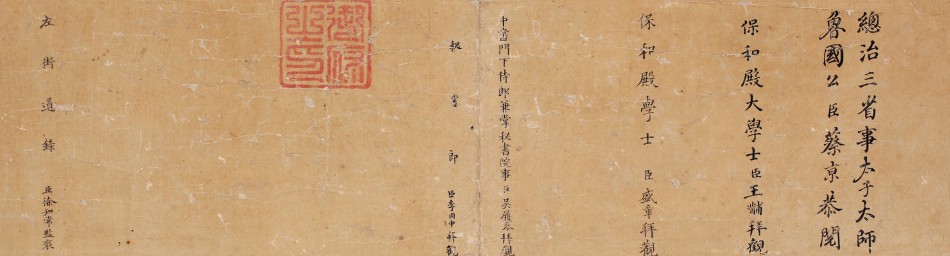 總治三省事太子太師
魯國公臣蔡京恭閱
保和殿大學士臣王黼拜觀
保和殿學士 臣盛章拜觀
中書門下侍郎兼掌秘書院事臣吳履恭拜觀
秘書郎 臣李 中拜觀
左街道錄 臣徐知常監裝